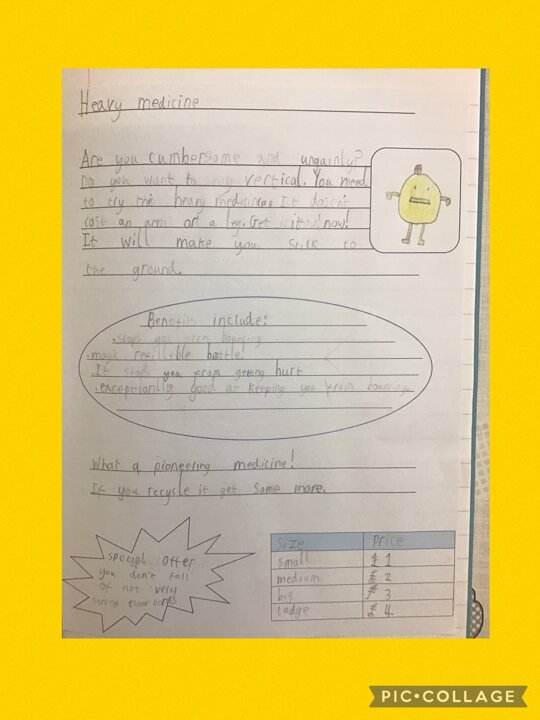 Heavy medicine
Are you cumbersome and ungainly?
Do you want to stay vertical. You need
to try the heavy medicine. It doesn't
cost an arm or a leg. Get it now! now!
It will make you stik to
the ground.
Benefits include:
.stops you from bouncing
.magic refillable bottle.
.It stops you from getting hurt
.exceptionlly good at keeping you from bouncing.
What a pioneering medicine!
If you recycle it get some more.
special offer
you don't fall
of not very
strong floor
Size Price
small £1
medium £2
big £3
ladge £4
PIC•COLLAGE